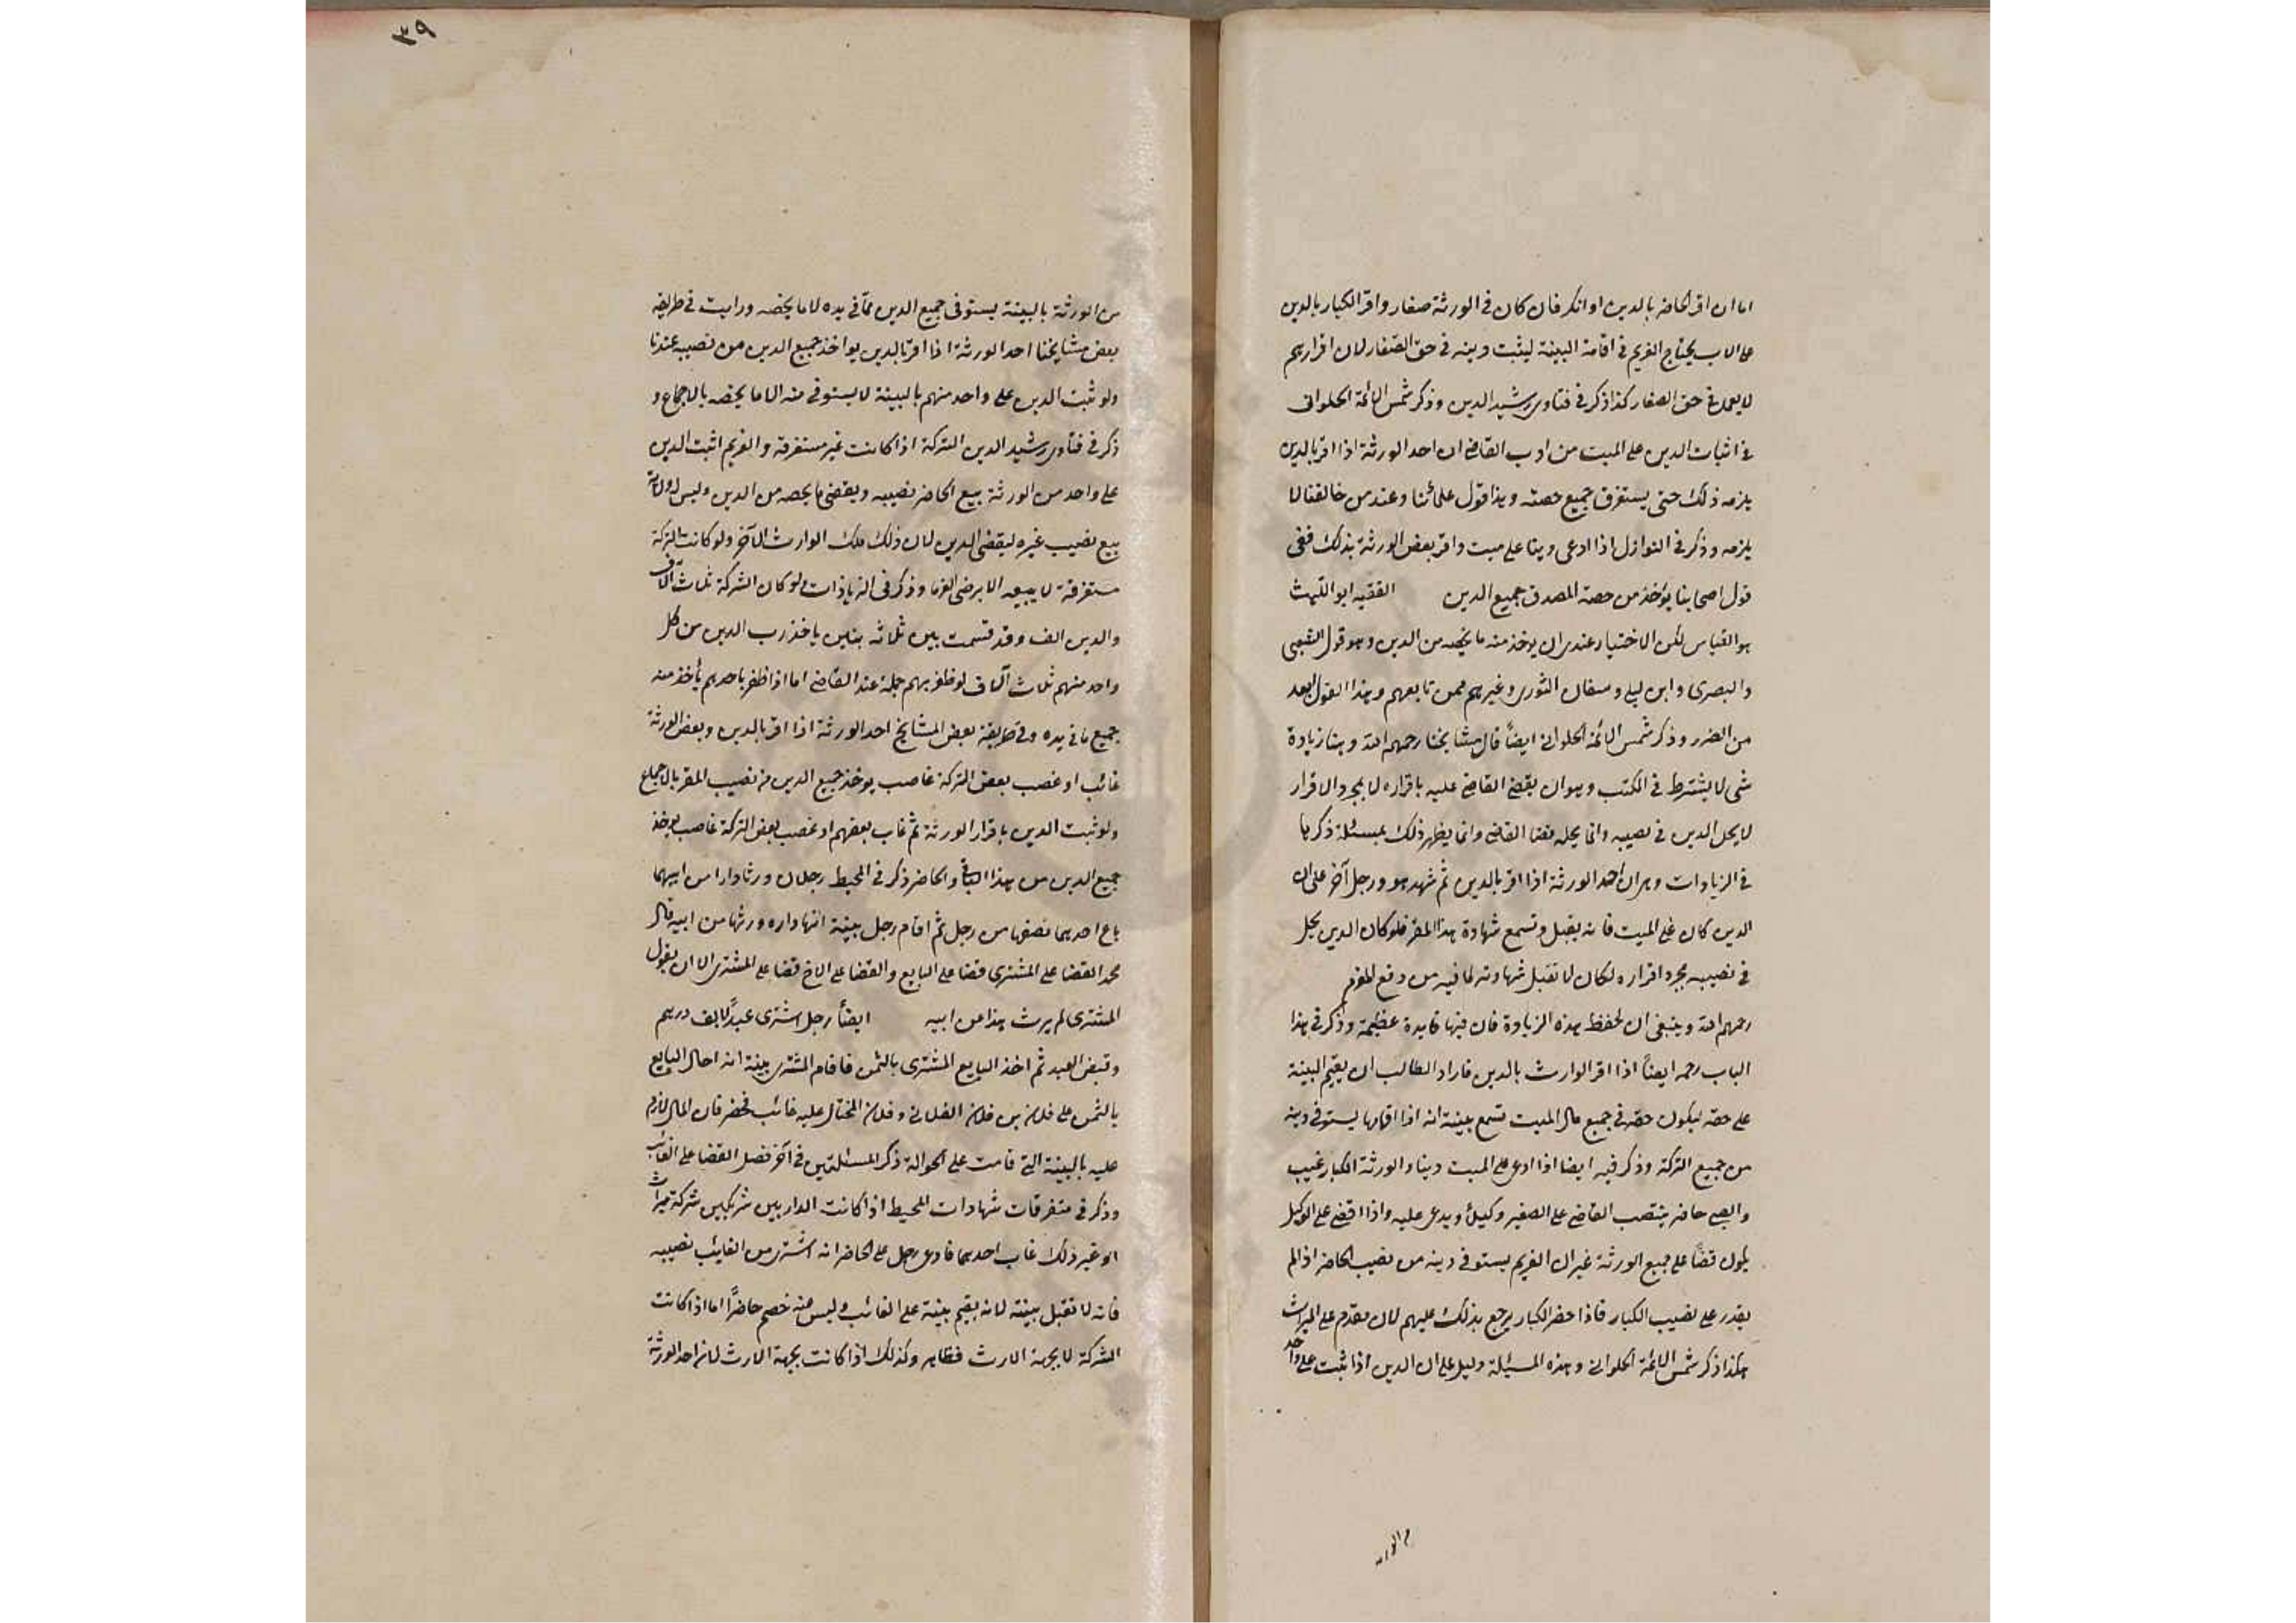 اما ان اقر الحاضر بالدين او انكر فان كان فى الورثة صغار واقر الكبار بالدين
على الاب يحتاج الغريم فى اقامة البينة ليثبت دينه فى حق الصغار لان اقرارهم
لا يعمل فى حق الصغار كذا ذكر فى فتاوى رشيد الدين وذكر شمس الائمة الحلوانى
فى اثبات الدين على الميت من ادب القاضى ان احد الورثة اذا اقر بالدين
يلزمه ذلك حتى يستغرق جميع حصته وهذا قول علمائنا وعند من خالفنا لا
يلزمه وذكر فى النوازل اذا ادعى دينا على ميت واقر بعض الورثة بذلك ففى
قول اصحابنا يؤخذ من حصة المصدق جميع الدين الفقيه ابو الليث
هو القياس لكن الاختيار عندى ان يوخذ منه ما يخصه من الدين وهو قول الشعبى
والبصرى وابن ليلى وسفان الثورى وغيرهم ممن تابعهم وهذا القول ابعد
من الضرر وذكر شمس الائمة الحلوانى ايضاً قال مشايخنا رحمهم الله وهنا زيادة
شى لا يشترط فى الكتب وهو ان يقضى القاضى عليه باقراره لا بمجرد الاقرار
لا يحل الدين فى نصيبه وانما يحله قضا القاضى وانما يظهر ذلك بمسئلة ذكرها
فى الزيادات وهى ان احد الورثة اذا اقر بالدين ثم شهد هو ورجل آخر على ان
الدين كان على الميت فانه يقبل وتسمع شهادة هذا المقر فلو كان الدين يحل
فى نصيبه بمجرد اقراره لكان لا تقبل شهادته لما فيه من دفع المغرم
رحمهم الله وينبغى ان تحفظ هذه الزيادة فان فيها فايدة عظيمة وذكر فى هذا
الباب رحمه ايضاً اذا اقر الوارث بالدين فاراد الطالب ان يقيم البينة
على حقه ليكون حقه فى جميع مال الميت تسمع بينته انه اذا اقامها يستوفى دينه
من جميع التركة وذكر فيه ايضا اذا ادعى على الميت دينا والورثة الكبار غيب
والصبى حاضر ينتصب القاضى على الصغير وكيلاً ويدعى عليه واذا قضى على الوكيل
يكون قضاً على جميع الورثة غير ان الغريم يستوفى دينه من نصيب الحاضر اذا لم
يقدر على نصيب الكبار فاذا حضر الكبار يرجع بذلك عليهم لان مقدم على الميراث
هكذا ذكر شمس الائمة الحلوانى وهذه المسئلة دليل على ان الدين اذا ثبت على واحد
٣٩
من الورثة بالبينة يستوفى جميع الدين ممّا فى يده لا ما يخصه ورايت فى طريقه
بعض مشايخنا احد الورثة اذا اقر بالدين يواخذ جميع الدين من نصيبه عندنا
ولو ثبت الدين على واحد منهم بالبينة لا يستوفى منه الا ما يخصه بالاجماع و
ذكر فى فتاوى رشيد الدين التركة اذا كانت غير مستغرقة والغريم اثبت الدين
على واحد من الورثة يبيع الحاضر نصيبه ويقضى ما يخصه من الدين وليس له ولاية
بيع نصيب غيره ليقضى الدين لان ذلك ملك الوارث الآخر ولو كانت التركة
مستغرقة لا يبيعه الا برضى الغرما وذكر فى الزيادات ولو كان الشركة ثلاث آلاف
والدين الف وقد قسمت بين ثلاثه بنين ياخذ رب الدين من كل
واحد منهم ثلاث آلاف لو ظفر بهم جملة عند القاضى اما اذا ظفر باحدهم يأخذ منه
جميع ما فى يده وفى طريقة بعض المشايخ احد الورثة اذا اقر بالدين وبعض الورثة
غائب او غصب بعض التركة غاصب يوخذ جميع الدين من نصيب المقر بالاجماع
ولو ثبت الدين باقرار الورثة ثم غاب بعضهم او غصب بعض التركة غاصب يوخذ
جميع الدين من هذا الباقى والحاضر ذكر فى المحيط رجلان ورثا دارا من ابيهما
باع احدهما نصفها من رجل ثم اقام رجل بينة انها داره ورثها من ابيه قال
محمد القضا على المشترى قضا على البايع والقضا على الاخ قضا على المشترى الا ان يقول
المشترى لم يرث هذا من ابيه ايضاً رجل اشترى عبداً بالف درهم
وقبض العبد ثم اخذ البايع المشترى بالثمن فاقام المشترى بينة انه احال البايع
بالثمن على فلان بن فلان الفلانى وفلان المحتال عليه غائب فحضر فان المال لازم
عليه بالبينة التى قامت على الحوالة ذكر المسئلتين فى آخر فصل القضا على الغائب
وذكر فى متفرقات شهادات المحيط اذا كانت الدار بين شريكين شركة ميراث
او غير ذلك غاب احدهما فادعى رجل على الحاضر انه اشترى من الغايب نصيبه
فانه لا تقبل بينته لانه يقيم بينة على الغائب وليس عنه خصم حاضراً اما اذا كانت
الشركة لا بجهة الارث فظاهر وكذلك اذا كانت بجهة الارث لان احد الورثة